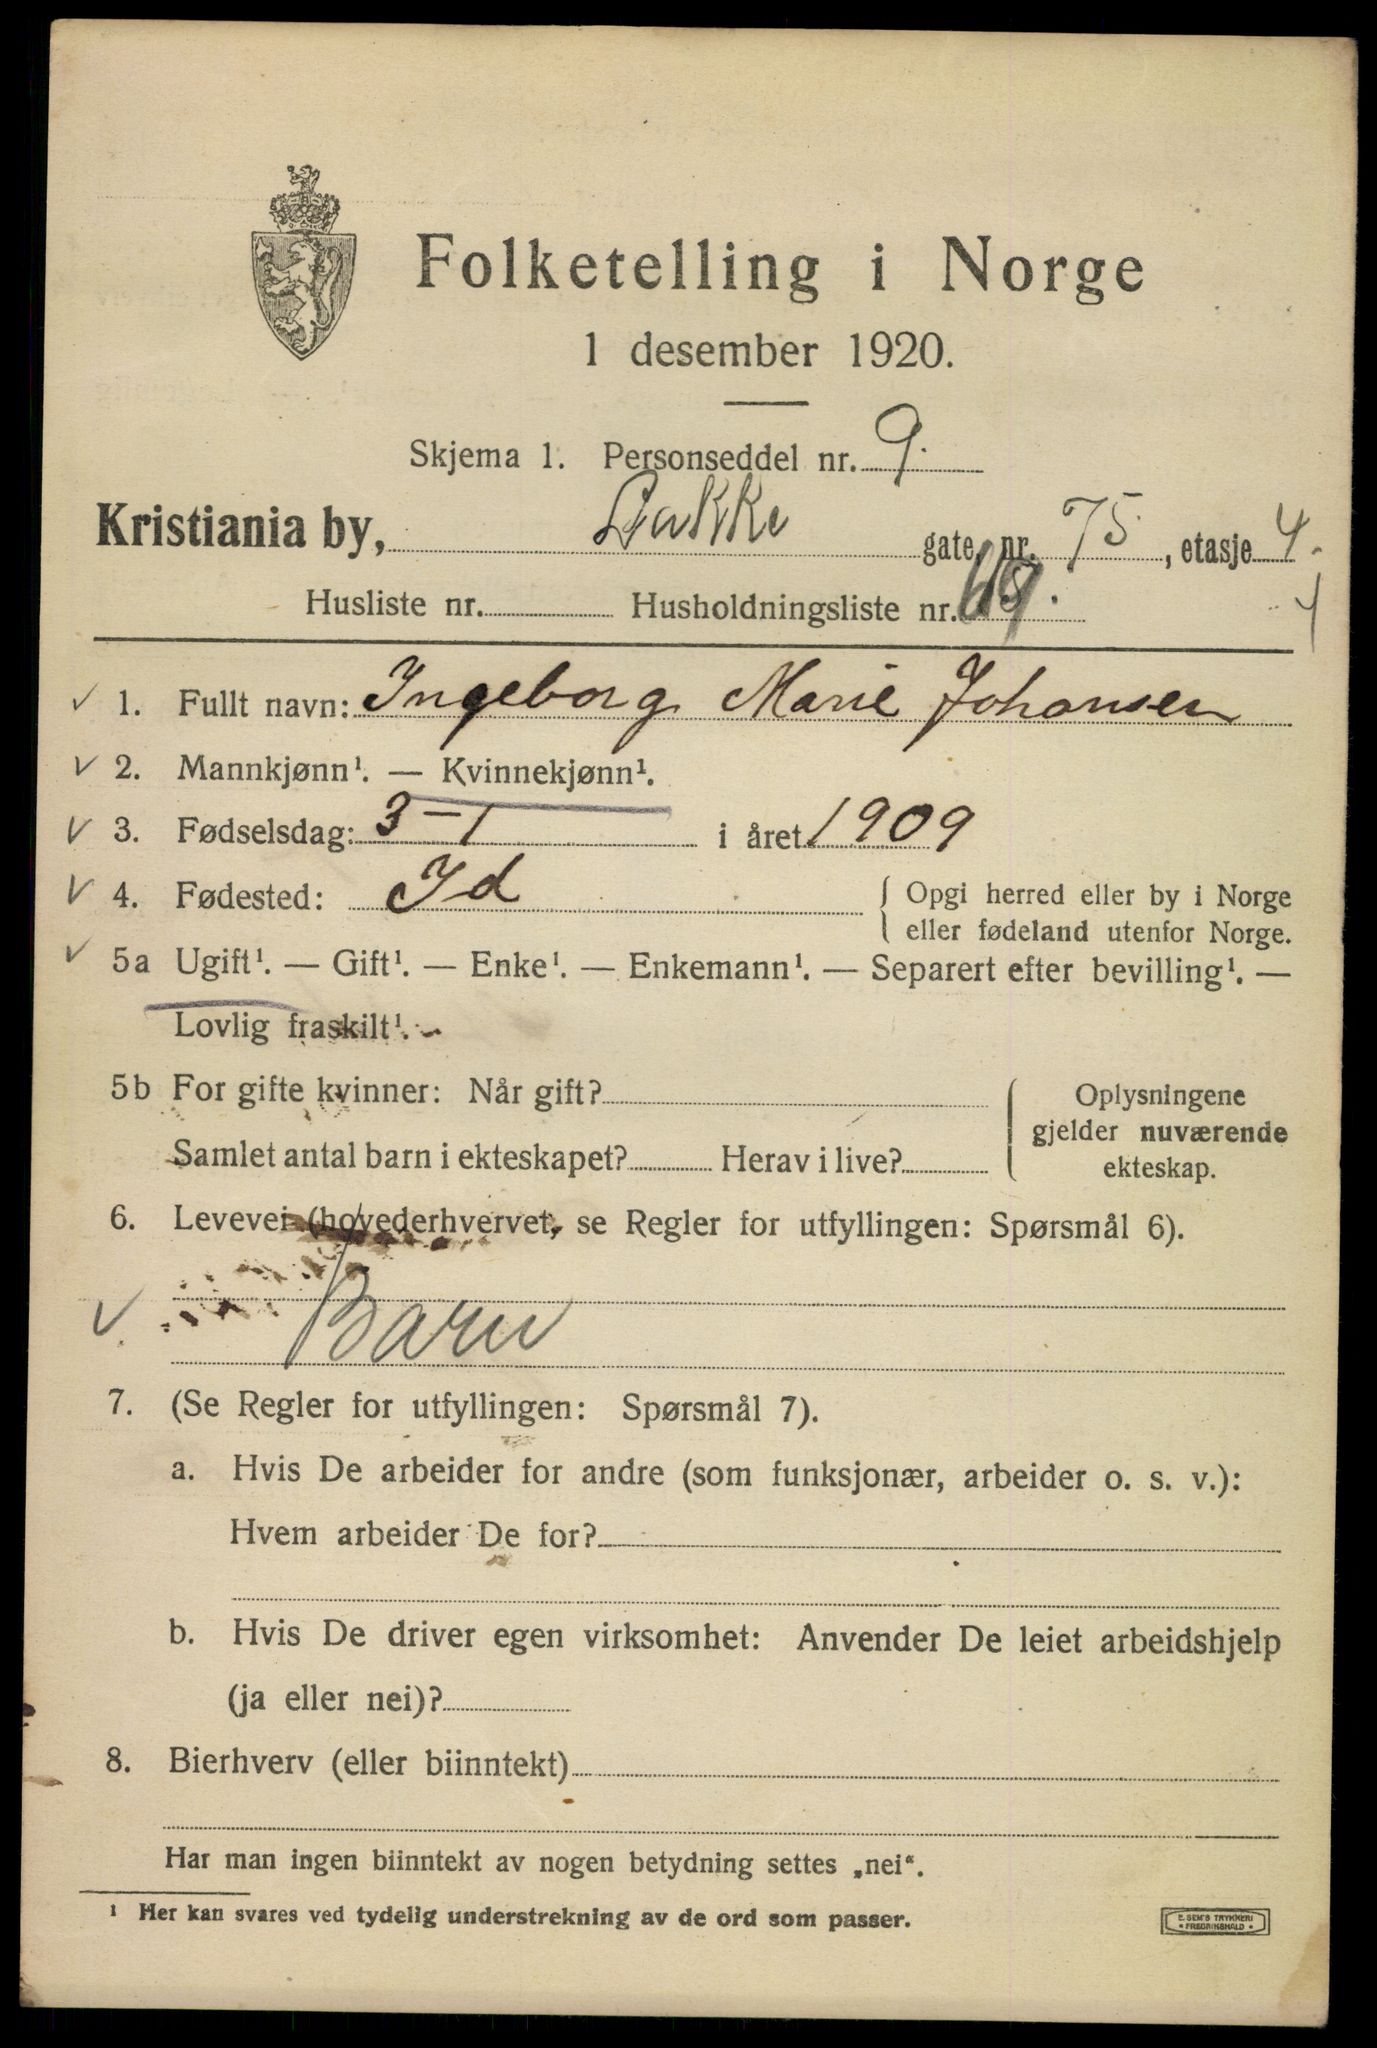 Folketelling i Norge
1 desember 1920.
Skjema 1. Personseddel nr. 9.
Kristiania by, Dakke gate, nr. 75, etasje 4.
Husliste nr. Husholdningsliste nr.
✓ 1. Fullt navn: Ingeborg Marie Johansen
✓ 2. Mannkjønn¹. — Kvinnekjønn¹.
✓ 3. Fødselsdag: 3-1 i året 1909
✓ 4. Fødested: Id { Opgi herred eller by i Norge
eller fødeland utenfor Norge.
✓ 5a Ugift¹. — Gift¹. — Enke¹. — Enkemann¹. — Separert efter bevilling¹. —
Lovlig fraskilt¹.
5b For gifte kvinner: Når gift?
Samlet antal barn i ekteskapet? Herav i live?
Oplysningene
gjelder nuværende
ekteskap.
6. Levevei (hovederhvervet, se Regler for utfyllingen: Spørsmål 6).
✓ Barn
7. (Se Regler for utfyllingen: Spørsmål 7).
a. Hvis De arbeider for andre (som funksjonær, arbeider o. s. v.):
Hvem arbeider De for?
b. Hvis De driver egen virksomhet: Anvender De leiet arbeidshjelp
(ja eller nei)?
8. Bierhverv (eller biinntekt)
Har man ingen biinntekt av nogen betydning settes „nei“.
¹ Her kan svares ved tydelig understrekning av de ord som passer.
E. SEM'S TRYKKERI
• FREDRIKSHALD •